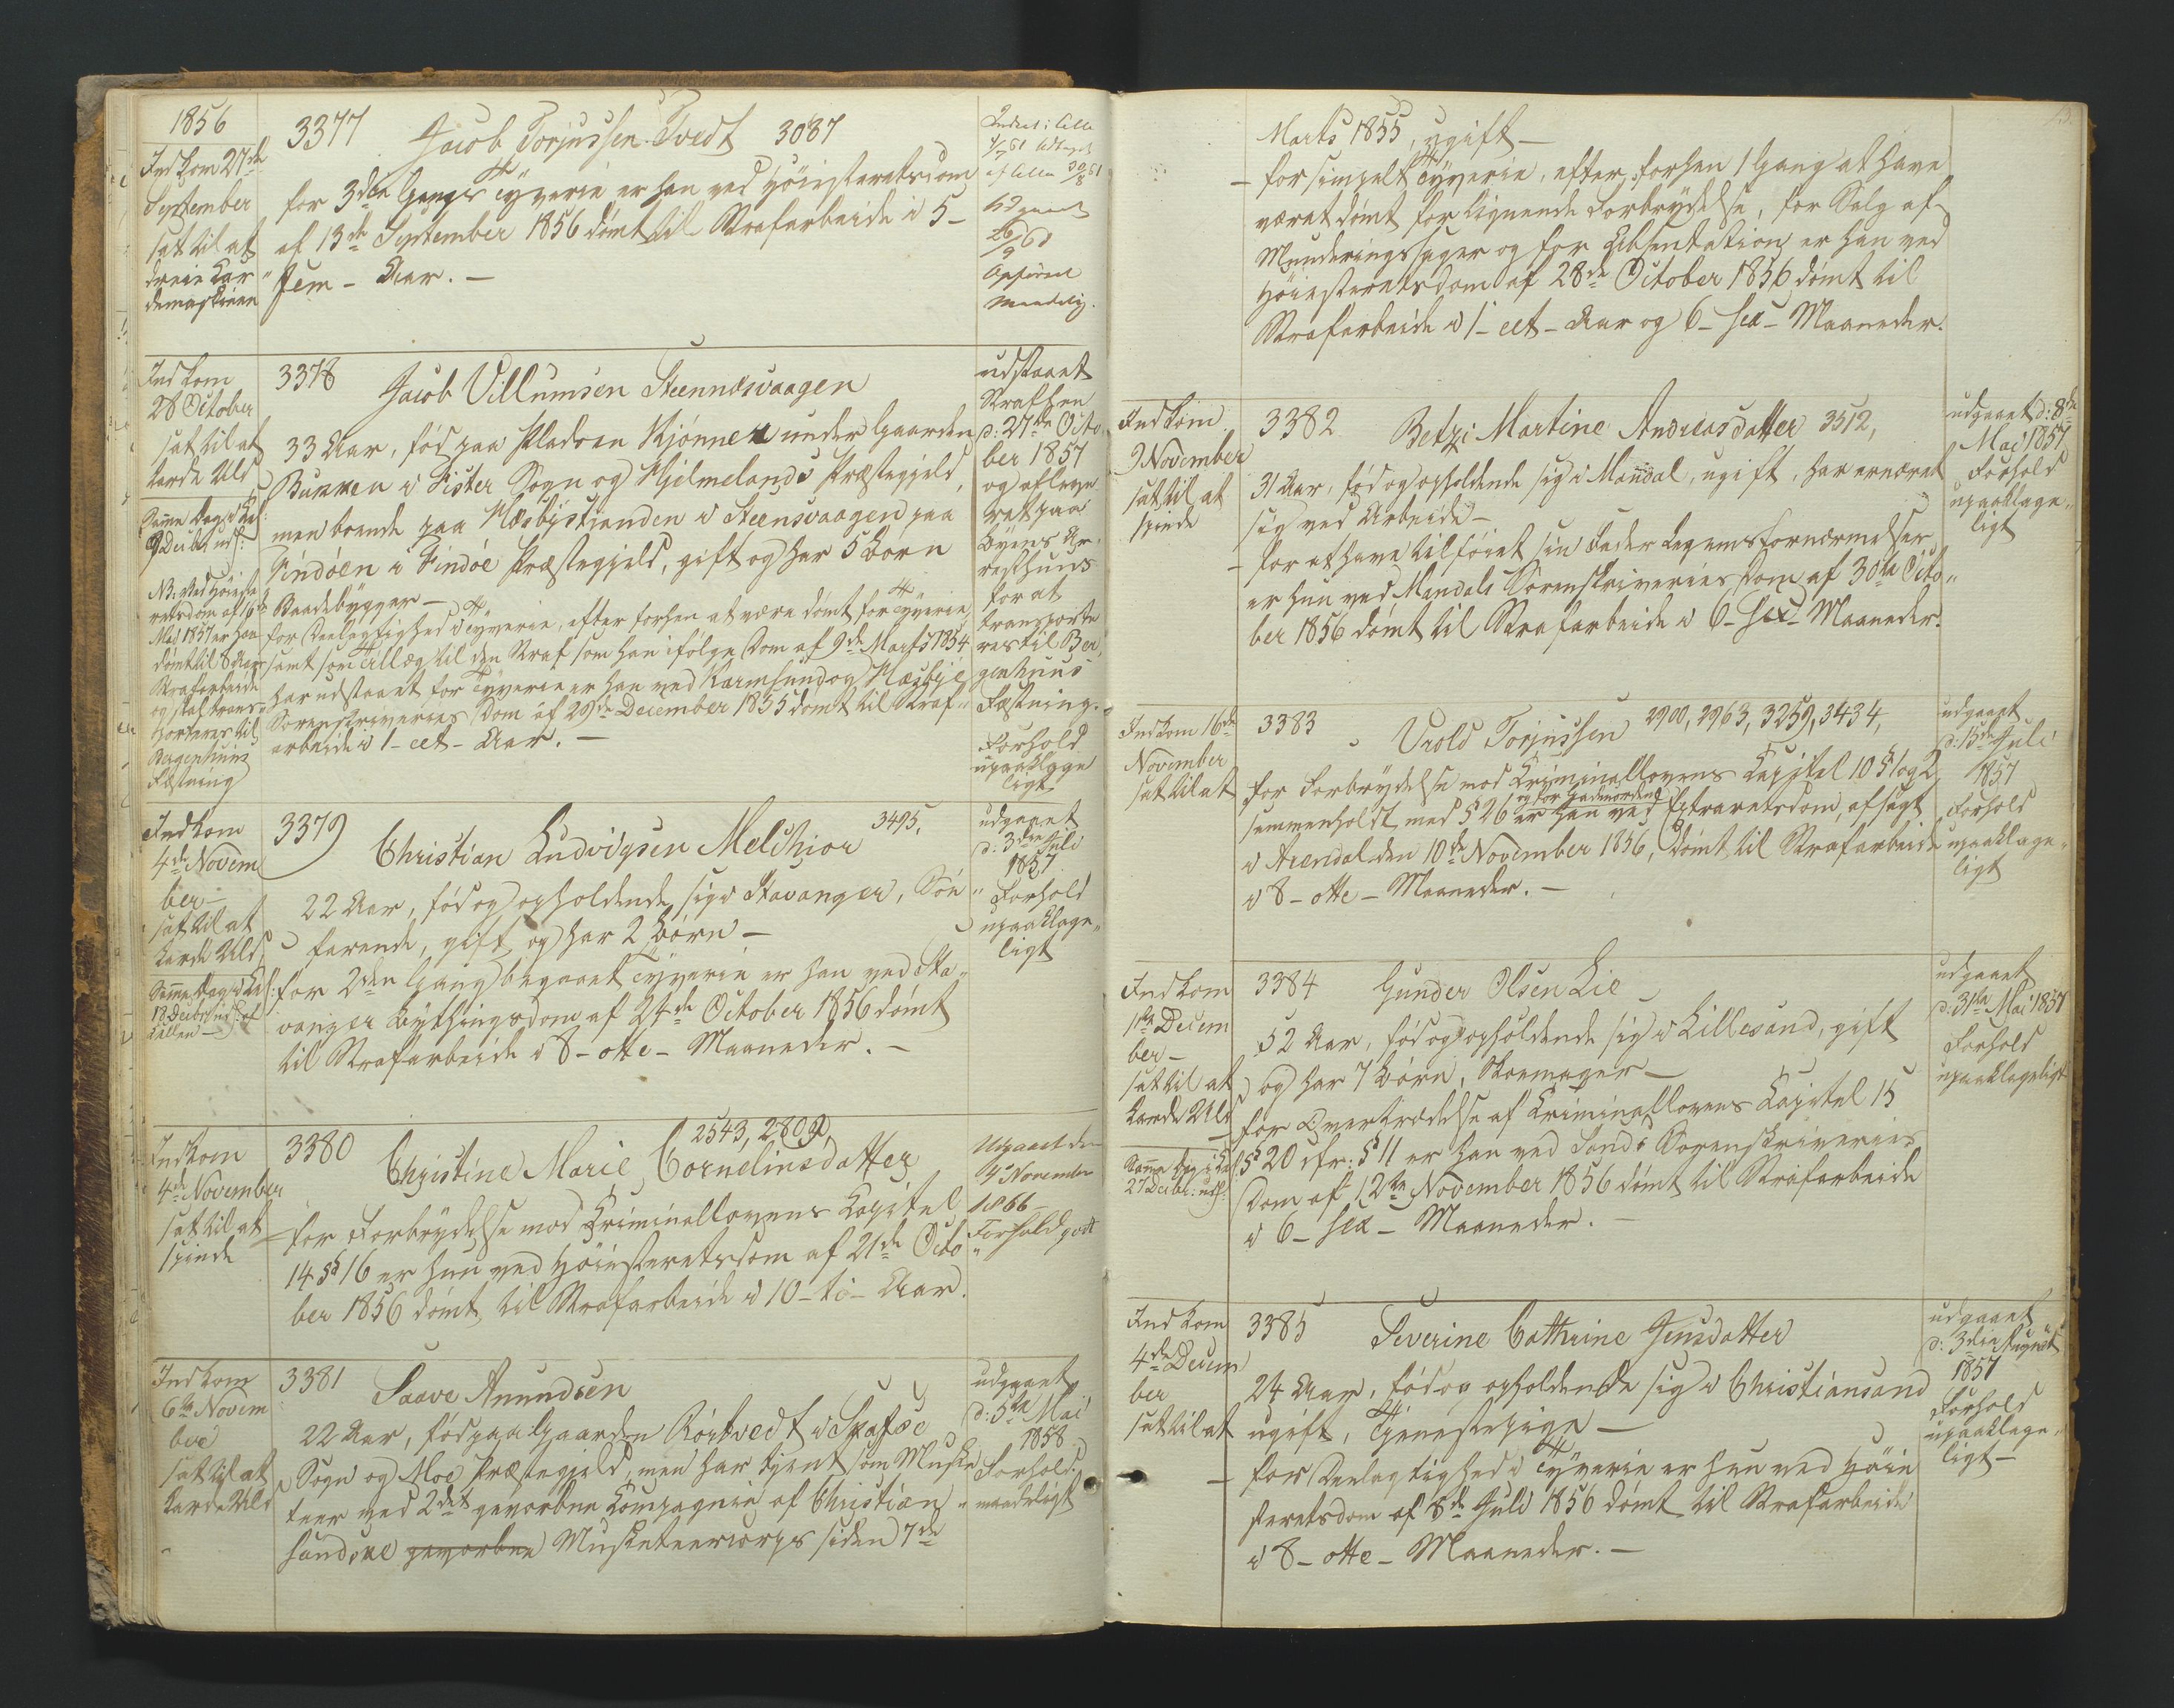 1856
Indkom 27de
September
sat til at
dreie Kar-
demaskinen
3377 Jacob Torjussen Tvedt 3087
for 3die Gangs Tyverie er han ved Høiesteretsdom
af 13de September 1856 dømt til Strafarbeide i 5-
fem - Aar. -
Udgaaet
26/9 61
Opførsel
maadelig.
Indkom
28 October
sat til at
karde Uld
Samme Dag i Cel:
9 Decbr. uds:
NB. Ved Høieste-
retsdom af 16de
Mai 1857 er han
dømt til 8 Aars
Strafarbeide
og skal trans-
porteres til
Bergenhuus
Fæstning
3378 Jacob Villumsen Steennæsvaagen
33 Aar, fød paa Pladsen Kjønnen under Gaarden
i Fister Sogn og Hjelmelands Præstegjeld,
men boende paa Næsbystranden i Steensvaagen paa
Findøen i Findøe Præstegjeld, gift og har 5 Børn
Baadebygger -
for Deelagtighed i Tyverie, efter forhen at være dømt for Tyverie,
samt som Tillæg til den Straf som han ifølge Dom af 9de Marts 1854
har udstaaet for Tyverie er han ved Karmsund og Hæsbye
Sorenskriveries Dom af 29de December 1855 dømt til Straf-
arbeide i 1 - eet - Aar. -
udstaaet
Straffen
d: 27de Octo-
ber 1857
og afleve-
ret paa
Byens Ar-
resthuus
for at
transporte-
res til Ber-
genhuus
Fæstning.
Forhold
upaaklage
ligt.
Indkom
4de Novem
ber -
sat til at
karde Uld,
Samme Dag i Cel:
18 Decbr. uds: af
Cellen -
3379 Christian Ludvigsen Melchior 3495,
22 Aar, fød og opholdende sig i Stavanger, Søe
farende, gift og har 2 Børn -
for 2den Gang begaaet Tyverie er han ved Sta-
vanger Bythingsdom af 24de October 1856 dømt
til Strafarbeide i 8 - otte - Maaneder. -
udgaaet
d: 3die Juli
1857
Forhold
upaaklage-
ligt
Indkom
4de November
sat til at
spinde
3380 Christine Marie Cornelinsdatter 2543, 2809,
for Forbrydelse mod Criminallovens Capitel
14 § 16 er hun ved Høiesteretsdom af 21de Octo
ber 1856 dømt til Strafarbeide i 10 - ti - Aar.
Udgaaet den
4de November
1866 -
Forhold godt
Indkom
6te Novem
ber
sat til at
karde Uld
3381 Saave Anundsen
22 Aar, fød paa Gaarden Rørtvedt i Skafse
Sogn og Moe Præstegjeld, men har tjent som Muske
teer ved 2det gevorbne Compagnie af Christian-
sandske gevorbne Musketeercorps siden 7de
udgaaet
d: 5te Mai
1858
Forhold
maadeligt
Marts 1855, ugift -
- for simpelt Tyverie, efter forhen 1 Gang at have
været dømt for lignende Forbrydelse, for Salg af
Munderingssager og for Absentation er han ved
Høiesteretsdom af 28de October 1856 dømt til
Strafarbeide i 1 - eet - Aar og 6 - sex - Maaneder.
Indkom
9 November
sat til at
spinde
3382 Betzi Martine Andreasdatter 3512,
31 Aar, fød og opholdende sig i Mandal, ugift, har ernæret
sig ved Arbeide -
- for at have tilføiet sin Fader Legemsfornærmelser
er hun ved Mandals Sorenskriveries Dom af 30te Octo-
ber 1856 dømt til Strafarbeide i 6 - sex - Maaneder.
udgaaet d: 8de
Mai 1857
Forhold
upaaklage-
ligt
Indkom 16de
November
sat til at
3383 Vrold Torjussen 2900, 2963, 3259, 3434,
for Forbrydelse mod Criminallovens Capitel 10 § 1 og 2
sammenholdt med § 26 er han ved Extraretsdom, afsagt
i Arendal den 10de November 1856, dømt til Strafarbeide
i 8 - otte - Maaneder. -
udgaaet
d: 15de Juli
1857
Forhold
upaaklage-
ligt
Indkom
1ste Decem
ber -
sat til at
karde Uld
Samme Dag i Cel
27 Decbr: uds:
3384 Gunder Olsen Lie
52 Aar, fød og opholdende sig i Lillesand, gift
og har 7 Børn, Skomager -
for Overtrædelse af Criminallovens Capitel 15
§ 20 cfr: § 11 er han ved Sands Sorenskriveries
Dom af 12te November 1856 dømt til Strafarbeide
i 6 - sex - Maaneder. -
udgaaet
d: 31te Mai 1857
Forhold
upaaklageligt
Indkom
4de Decem
ber
sat til at
3385 Severine Cathrine Jensdatter
24 Aar, fød og opholdende sig i Christiansand
ugift, Tjenestepige -
- for Deelagtighed i Tyverie er hun ved Høie
steretsdom af 8de Juli 1856 dømt til Strafarbeide
i 8 - otte - Maaneder. -
udgaaet
d: 3die August
1857
Forhold
upaaklage-
ligt -